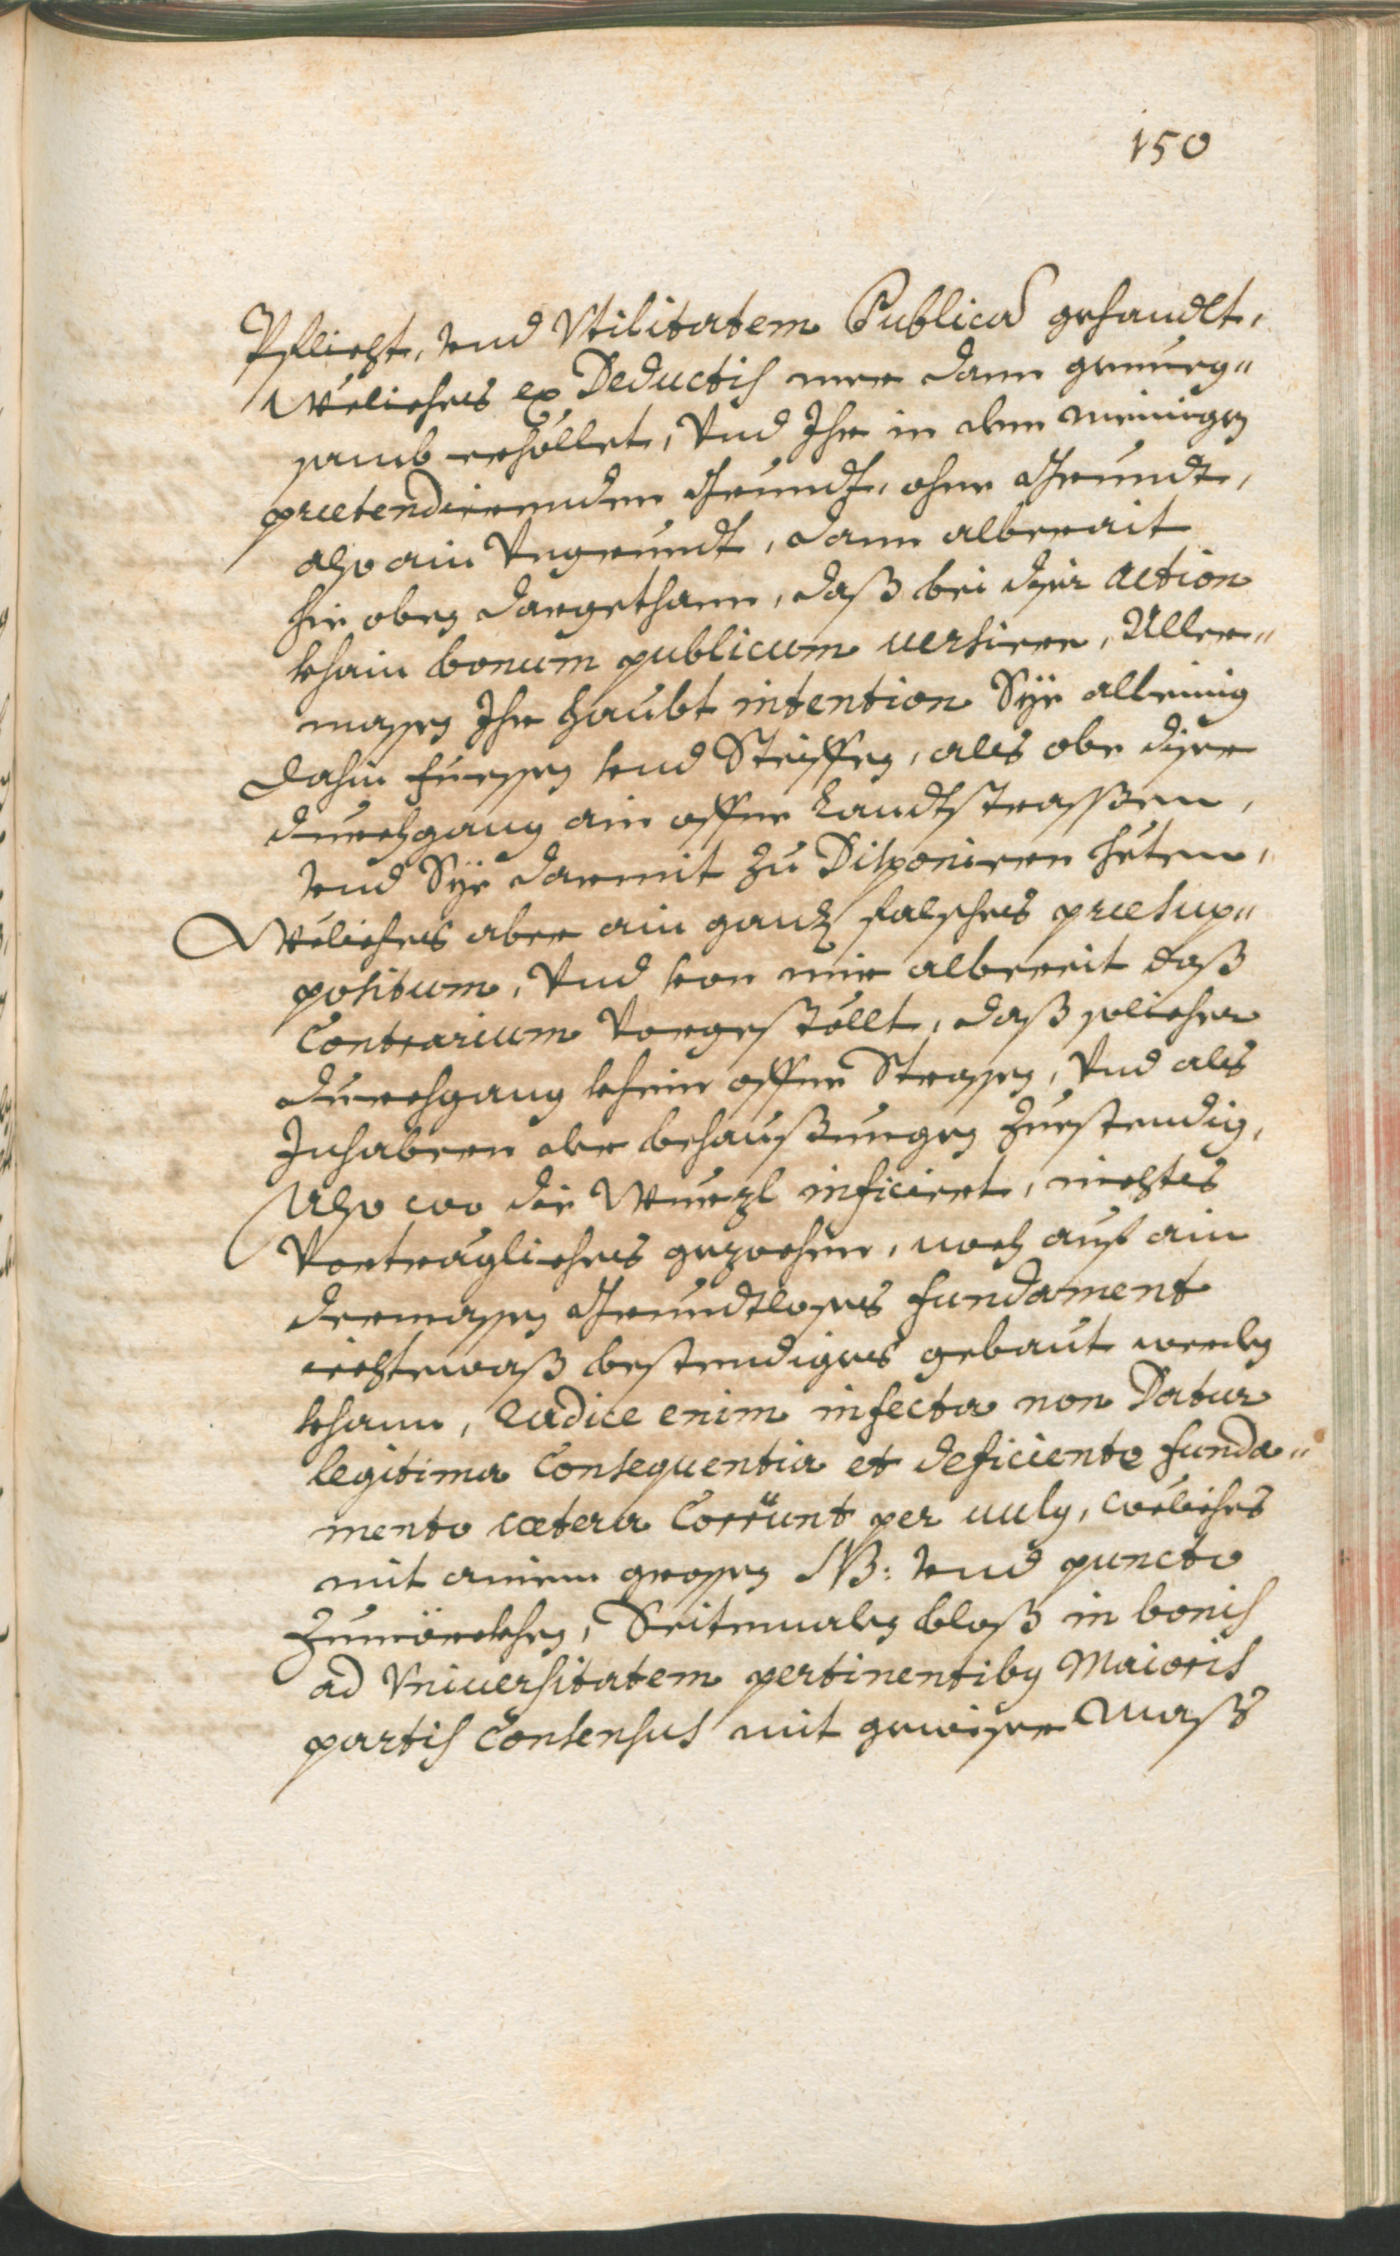 150
Pflicht, vnd Vtilitatem Publicã gehandlt,
Weliches ex Deductis mer dann genueg"
samb erhöllet, Vnd Ihr in dem meinigen
prætendirenden Grundt, ohne Grundt,
also ain Vngrundt, dann alberait
hie oben dargethann, daß bei diser Action
khain bonum publicum versiere, Aller"
massen Ihr haubt intention Sÿe alleinig
dahin fuessen vnd Steiffen, als ober diser
durchgang ain offne Landtstrassen,
vnd Sÿe darmit zu Disponiren heten,
Weliches aber ain ganz falsches præsup"
positum, Vnd von mir albereit daß
Contrarium Vorgestöllt, daß solicher
durchgang kheine offne Strassen, Vnd als
Inhabern der behaußungen zuestendig,
Also wo die Wurzl inficiert, nichtes
Vorträgliches gezochen, noch auf ain
dermassen Grundtloses fundament
ichtewaß bestendiges gebaut werden
khann, Radice enim infecta non Datur
legitima Consequentia et deficiente funda"
mento cætera Corrüunt per vulg, weliches
mit ainem grossen NB: vnd puncto
zumörckhen, Seitemalen bloß in bonis
ad Vniuersitatem pertinentibq Maioris
partis Consensus mit gewiser Maß